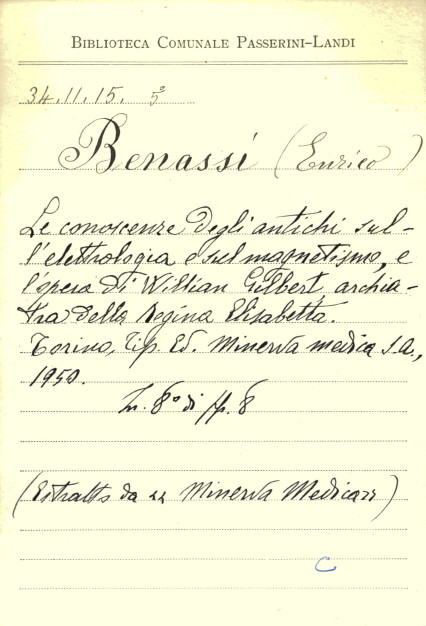 BIBLIOTECA COMUNALE PASSERINI-LANDI
34.11.15. 5°
Benassi (Enrico)
Le conoscenze degli antichi sul-
l'elettrologia e sul magnetismo, e
l'opera di Willian Gilbert archia-
tra della Regina Elisabetta.
Torino, Tip. Ed. Minerva medica S.A.,
1950.
In. 8° di pp. 8
(Estratto da "Minerva Medica")
C